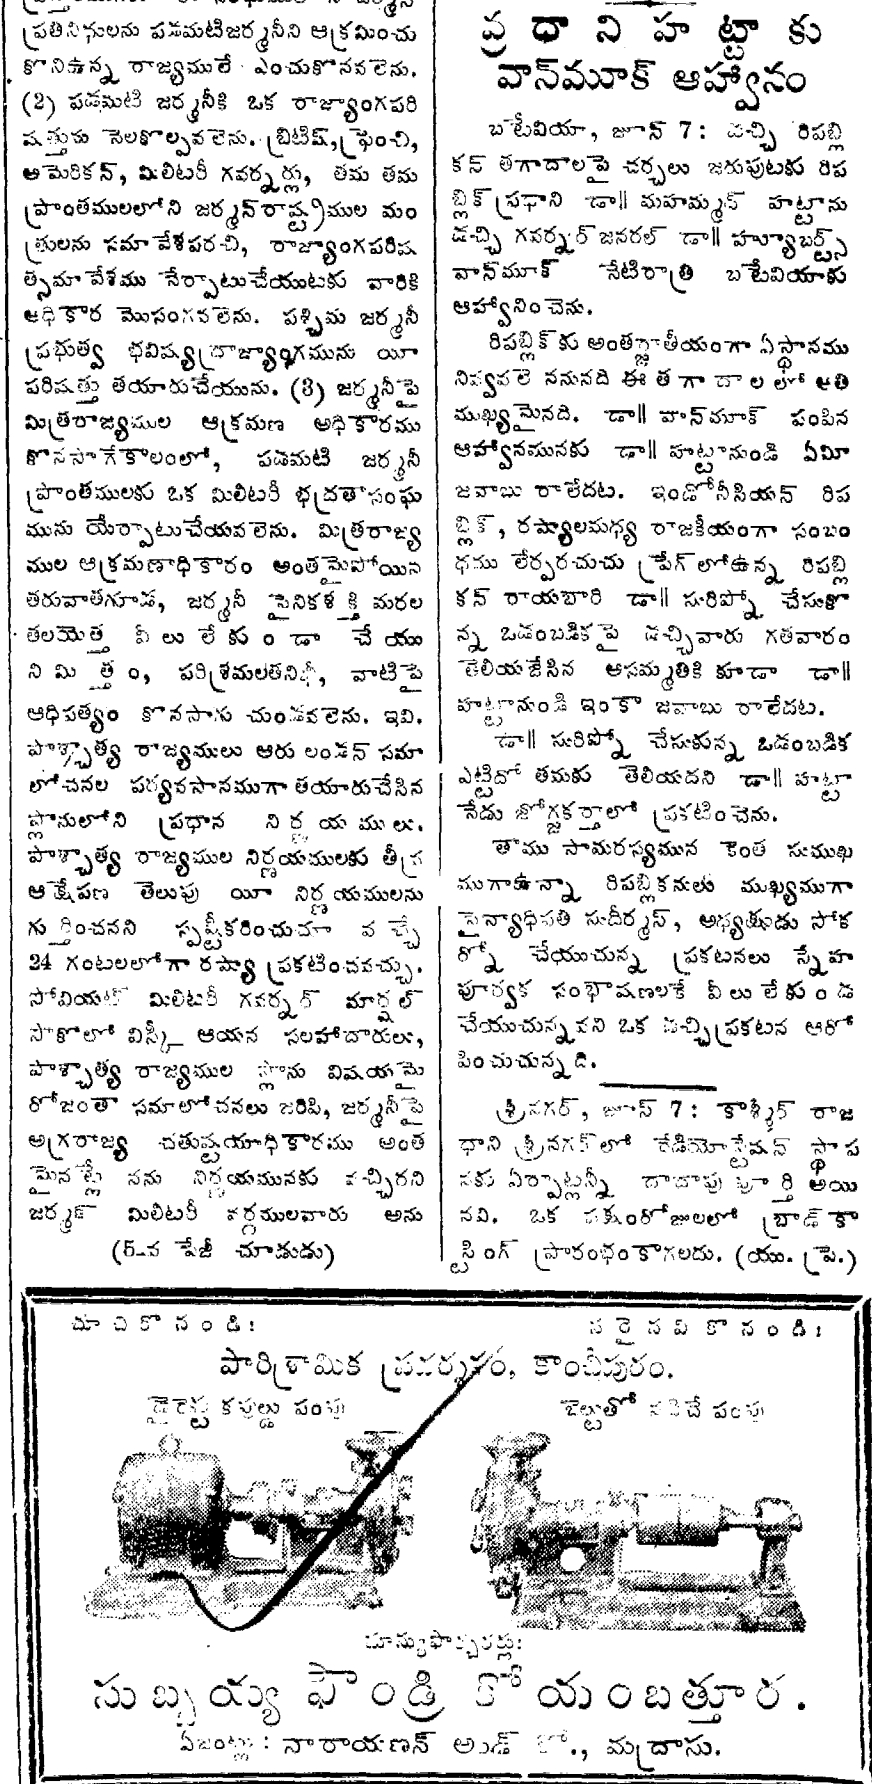 ప్రతినిధులను పడమటిజర్మనీని ఆక్రమించు
కొనిఉన్న రాజ్యములే ఎంచుకొనవలెను.
(2) పడమటి జర్మనీకి ఒక రాజ్యాంగపరి
షత్తును నెలకొల్పవలెను. బ్రిటిష్, ఫ్రెంచి,
అమెరికన్, మిలిటరీ గవర్నర్లు, తమ తమ
ప్రాంతములలోని జర్మన్‌రాష్ట్రముల మం
త్రులను సమావేశపరచి, రాజ్యాంగపరిష
త్సమావేశము నేర్పాటుచేయుటకు వారికి
అధికార మొసంగవలెను. పశ్చిమ జర్మనీ
ప్రభుత్వ భవిష్యద్రాజ్యాంగమును యీ
పరిషత్తు తయారుచేయును. (3) జర్మనీపై
మిత్రరాజ్యముల ఆక్రమణ అధికారము
కొనసాగేకాలంలో, పడమటి జర్మనీ
ప్రాంతములకు ఒక మిలిటరీ భద్రతాసంఘ
మును యేర్పాటుచేయవలెను. మిత్రరాజ్య
ముల ఆక్రమణాధికారం అంతమైపోయిన
తరువాతగూడ, జర్మనీ సైనికశక్తి మరల
తలయెత్త వీలులేకుండా చేయు
నిమిత్తం, పరిశ్రమలతనిఖీ, వాటిపై
ఆధిపత్యం కొనసాగు చుండవలెను. ఇవి.
పాశ్చాత్య రాజ్యములు ఆరు లండన్ సమా
లోచనల పర్యవసానముగా తయారుచేసిన
ప్లానులోని ప్రధాన నిర్ణయములు.
పాశ్చాత్య రాజ్యముల నిర్ణయములకు తీవ్ర
ఆక్షేపణ తెలుపు యీ నిర్ణయములను
గుర్తించనని స్పష్టీకరించుచూ వచ్చే
24 గంటలలోగా రష్యా ప్రకటించవచ్చు.
సోవియట్ మిలిటరీ గవర్నర్ మార్షల్
సొకోలోవిస్కీ ఆయన సలహాదారులు,
పాశ్చాత్య రాజ్యముల ప్లాను విషయమై
రోజంతా సమాలోచనలు జరిపి, జర్మనీపై
అగ్రరాజ్య చతుష్టయాధికారము అంత
మైనట్లే నను నిర్ణయమునకు వచ్చిరని
జర్మన్ మిలిటరీ వర్గములవారు అను
(5-వ పేజీ చూడుడు)
ప్రధాని హట్టాకు
వాన్‌మూక్ ఆహ్వానం
బటేవియా, జూన్ 7: డచ్చి రిపబ్లి
కన్ తగాదాలపై చర్చలు జరుపుటకు రిప
బ్లిక్ ప్రధాని డా॥ మహమ్మద్ హట్టాను
డచ్చి గవర్నర్ జనరల్ డా॥ హ్యూబర్ట్స్
వాన్‌మూక్ నేటిరాత్రి బటేవియాకు
ఆహ్వానించెను.
రిపబ్లిక్‌కు అంతర్జాతీయంగా ఏస్థానము
నివ్వవలె ననునది ఈ తగాదాలలో అతి
ముఖ్యమైనది. డా॥ వాన్‌మూక్ పంపిన
ఆహ్వానమునకు డా॥ హట్టానుండి ఏమీ
జవాబు రాలేదట. ఇండోనీసియన్ రిప
బ్లిక్, రష్యాలమధ్య రాజకీయంగా సంబం
ధము లేర్పరచుచు ప్రేగ్‌లోఉన్న రిపబ్లి
కన్ రాయబారి డా॥ సురిప్నో చేసుకొ
న్న ఒడంబడికపై డచ్చివారు గతవారం
తెలియజేసిన అసమ్మతికి కూడా డా॥
హట్టానుండి ఇంకా జవాబు రాలేదట.
డా॥ సురిప్నో చేసుకున్న ఒడంబడిక
ఎట్టిదో తమకు తెలియదని డా॥ హట్టా
నేడు జోగ్జకర్తాలో ప్రకటించెను.
తాము సామరస్యమున కెంత సుముఖ
ముగాఉన్నా రిపబ్లికనులు ముఖ్యముగా
సైన్యాధిపతి సుదీర్మన్, అధ్యక్షుడు సోక
ర్నో చేయుచున్న ప్రకటనలు స్నేహ
పూర్వక సంభాషణలకే వీలులేకుండ
చేయుచున్నవని ఒక డచ్చిప్రకటన ఆరో
పించుచున్నది.
శ్రీనగర్, జూన్ 7: కాశ్మీర్ రాజ
ధాని శ్రీనగర్‌లో రేడియోస్టేషన్ స్థాప
నకు ఏర్పాట్లన్నీ దాదాపు పూర్తి అయి
నవి. ఒక పక్షంరోజులలో బ్రాడ్ కా
స్టింగ్ ప్రారంభంకాగలదు. (యు. ప్రె.)
చూచికొనండి:
సరైనవి కొనండి:
పారిశ్రామిక ప్రదర్శనం, కాంచీపురం.
డైరెక్టు కపుల్డు పంపు
బెల్టుతో నడిచే పంపు
మాన్యుఫాక్చరర్లు:
సుబ్బయ్య ఫౌండ్రి కోయంబత్తూరు.
ఏజంట్లు: నారాయణన్ అండ్ కో., మద్రాసు.